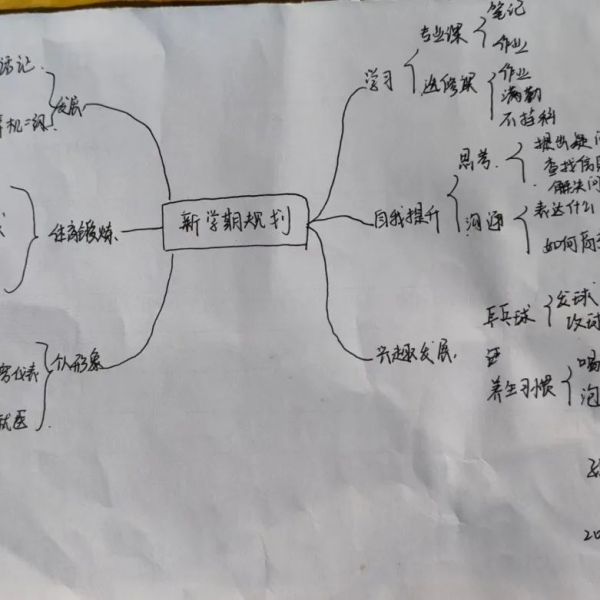 新学期规划
学习
专业课
笔记
作业
选修课
作业
满勤
不挂科
自我提升
思考
提出疑问
查找信息
解决问
沟通
表达什么
如何高
兴趣发展
乒乓球
发球
攻球
养生习惯
喝
泡
发展
机二级
体育锻炼
个人形象
仪表
就医
20